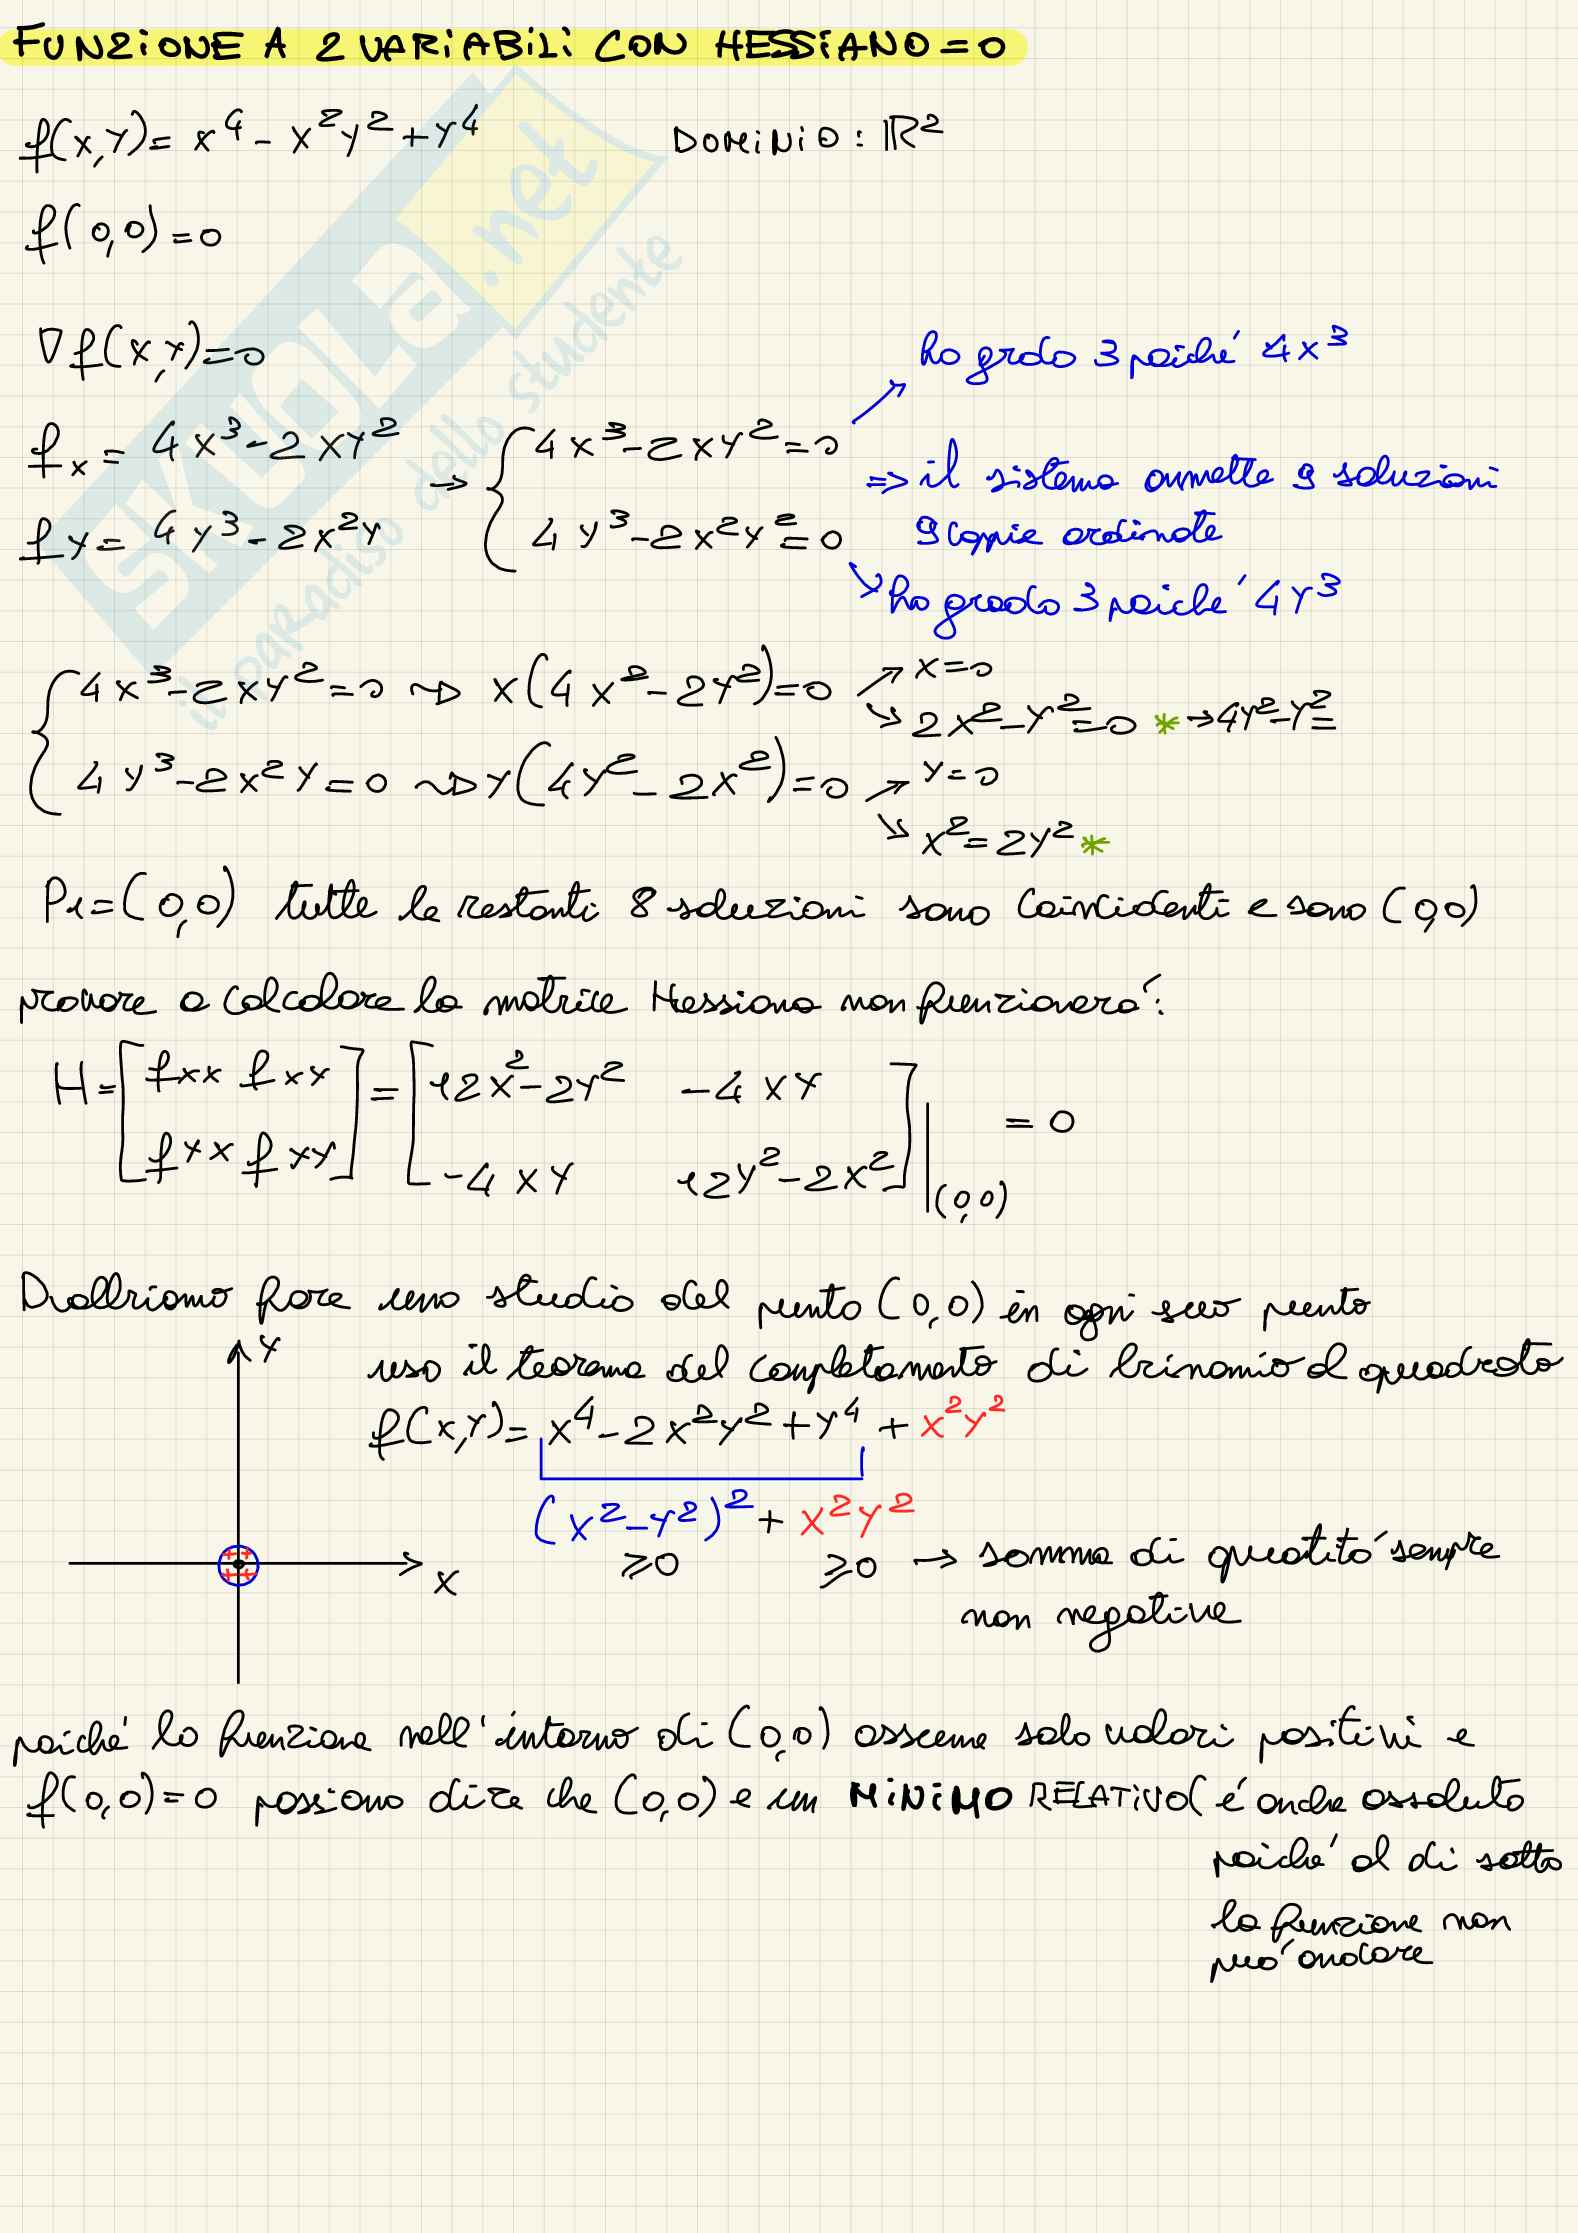 FUNZIONE A 2 VARIABILI CON HESSIANO = 0
f(x,y) = x⁴ - x²y² + y⁴ DOMINIO: ℝ²
f(0,0) = 0
∇f(x,y) = 0
ho grado 3 poiché 4x³
fx = 4x³ - 2xy² → { 4x³ - 2xy² = 0
⇒ il sistema ammette 9 soluzioni
fy = 4y³ - 2x²y { 4y³ - 2x²y² = 0
9 coppie ordinate
ho grado 3 poiché 4y³
{ 4x³ - 2xy² = 0 ⇝ x(4x² - 2y²) = 0 ↗ x = 0
↘ 2x² - y² = 0 * → 4y² - y² =
4y³ - 2x²y = 0 ⇝ y(4y² - 2x²) = 0 ↗ y = 0
↘ x² = 2y² *
P1 = (0,0) tutte le restanti 8 soluzioni sono coincidenti e sono (0,0)
provare a calcolare la matrice Hessiana non funzionerá:
H = [ fxx fxy ] = [ 12x² - 2y² -4xy ]
= 0
[ fyx fxy ] [ -4xy 12y² - 2x² ] |(0,0)
Dobbiamo fare uno studio del punto (0,0) in ogni suo punto
y
uso il teorema del completamento di binomio al quadrato
f(x,y) = x⁴ - 2x²y² + y⁴ + x²y²
(x² - y²)² + x²y²
x
≥0 ≥0 → somma di quatitá sempre
non negative
poiché la funzione nell'intorno di (0,0) assume solo valori positivi e
f(0,0) = 0 possiamo dire che (0,0) e un MINIMO RELATIVO ( é anche assoluto
poiché al di sotto
la funzione non
puó andare
SKUOLA.net
il paradiso dello studente